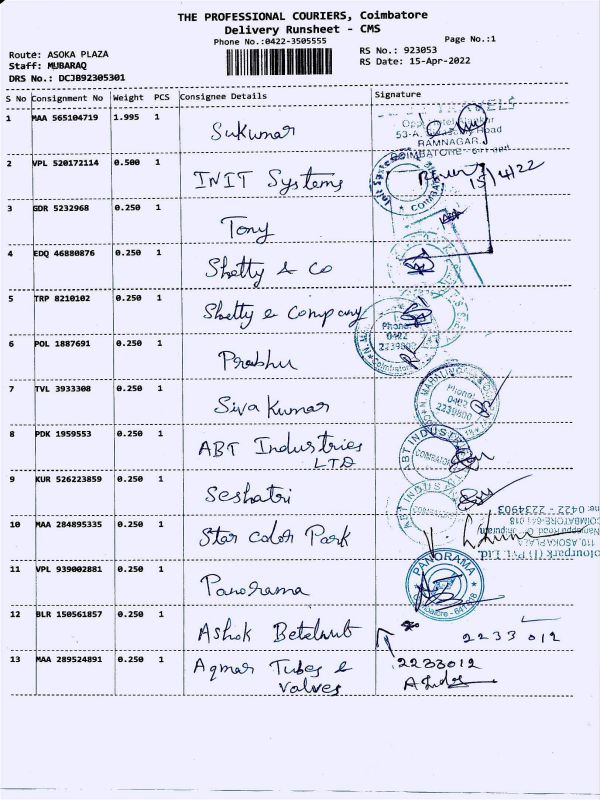 THE PROFESSIONAL COURIERS, Coimbatore
Delivery Runsheet - CMS
Phone No.:0422-3505555
Page No.:1
Route: ASOKA PLAZA
Staff: MUBARAQ
DRS No.: DCJB92305301
RS No.: 923053
RS Date: 15-Apr-2022
S No Consignment No Weight PCS Consignee Details Signature
1 MAA 565104719 1.995 1 Sukumar
53-A, Road
RAMNAGAR,
COIMBATORE
2 VPL 520172114 0.500 1 INIT Systems
15/4/22
3 GDR 5232968 0.250 1 Tony
4 EDQ 46880876 0.250 1 Shetty & Co
5 TRP 8210102 0.250 1 Shetty & Company
Phone:
0422
2239800
6 POL 1887691 0.250 1 Prabhu
7 TVL 3933308 0.250 1 Siva Kumar
Phone:
0422
2239800
8 PDK 1959553 0.250 1 ABT Industries
LTD
ABT INDUSTRI
COIMBATO
9 KUR 526223859 0.250 1 Seshatri
ABT INDUS
0422 - 2234903
COIMBATORE-641 018
110, ASOKAPLAZA
10 MAA 284895335 0.250 1 Star Color Park
11 VPL 939002881 0.250 1 Panorama
PANORAMA
12 BLR 150561857 0.250 1 Ashok Betelnut
2233 012
13 MAA 289524891 0.250 1 Aqmar Tubes &
Valves
2233012